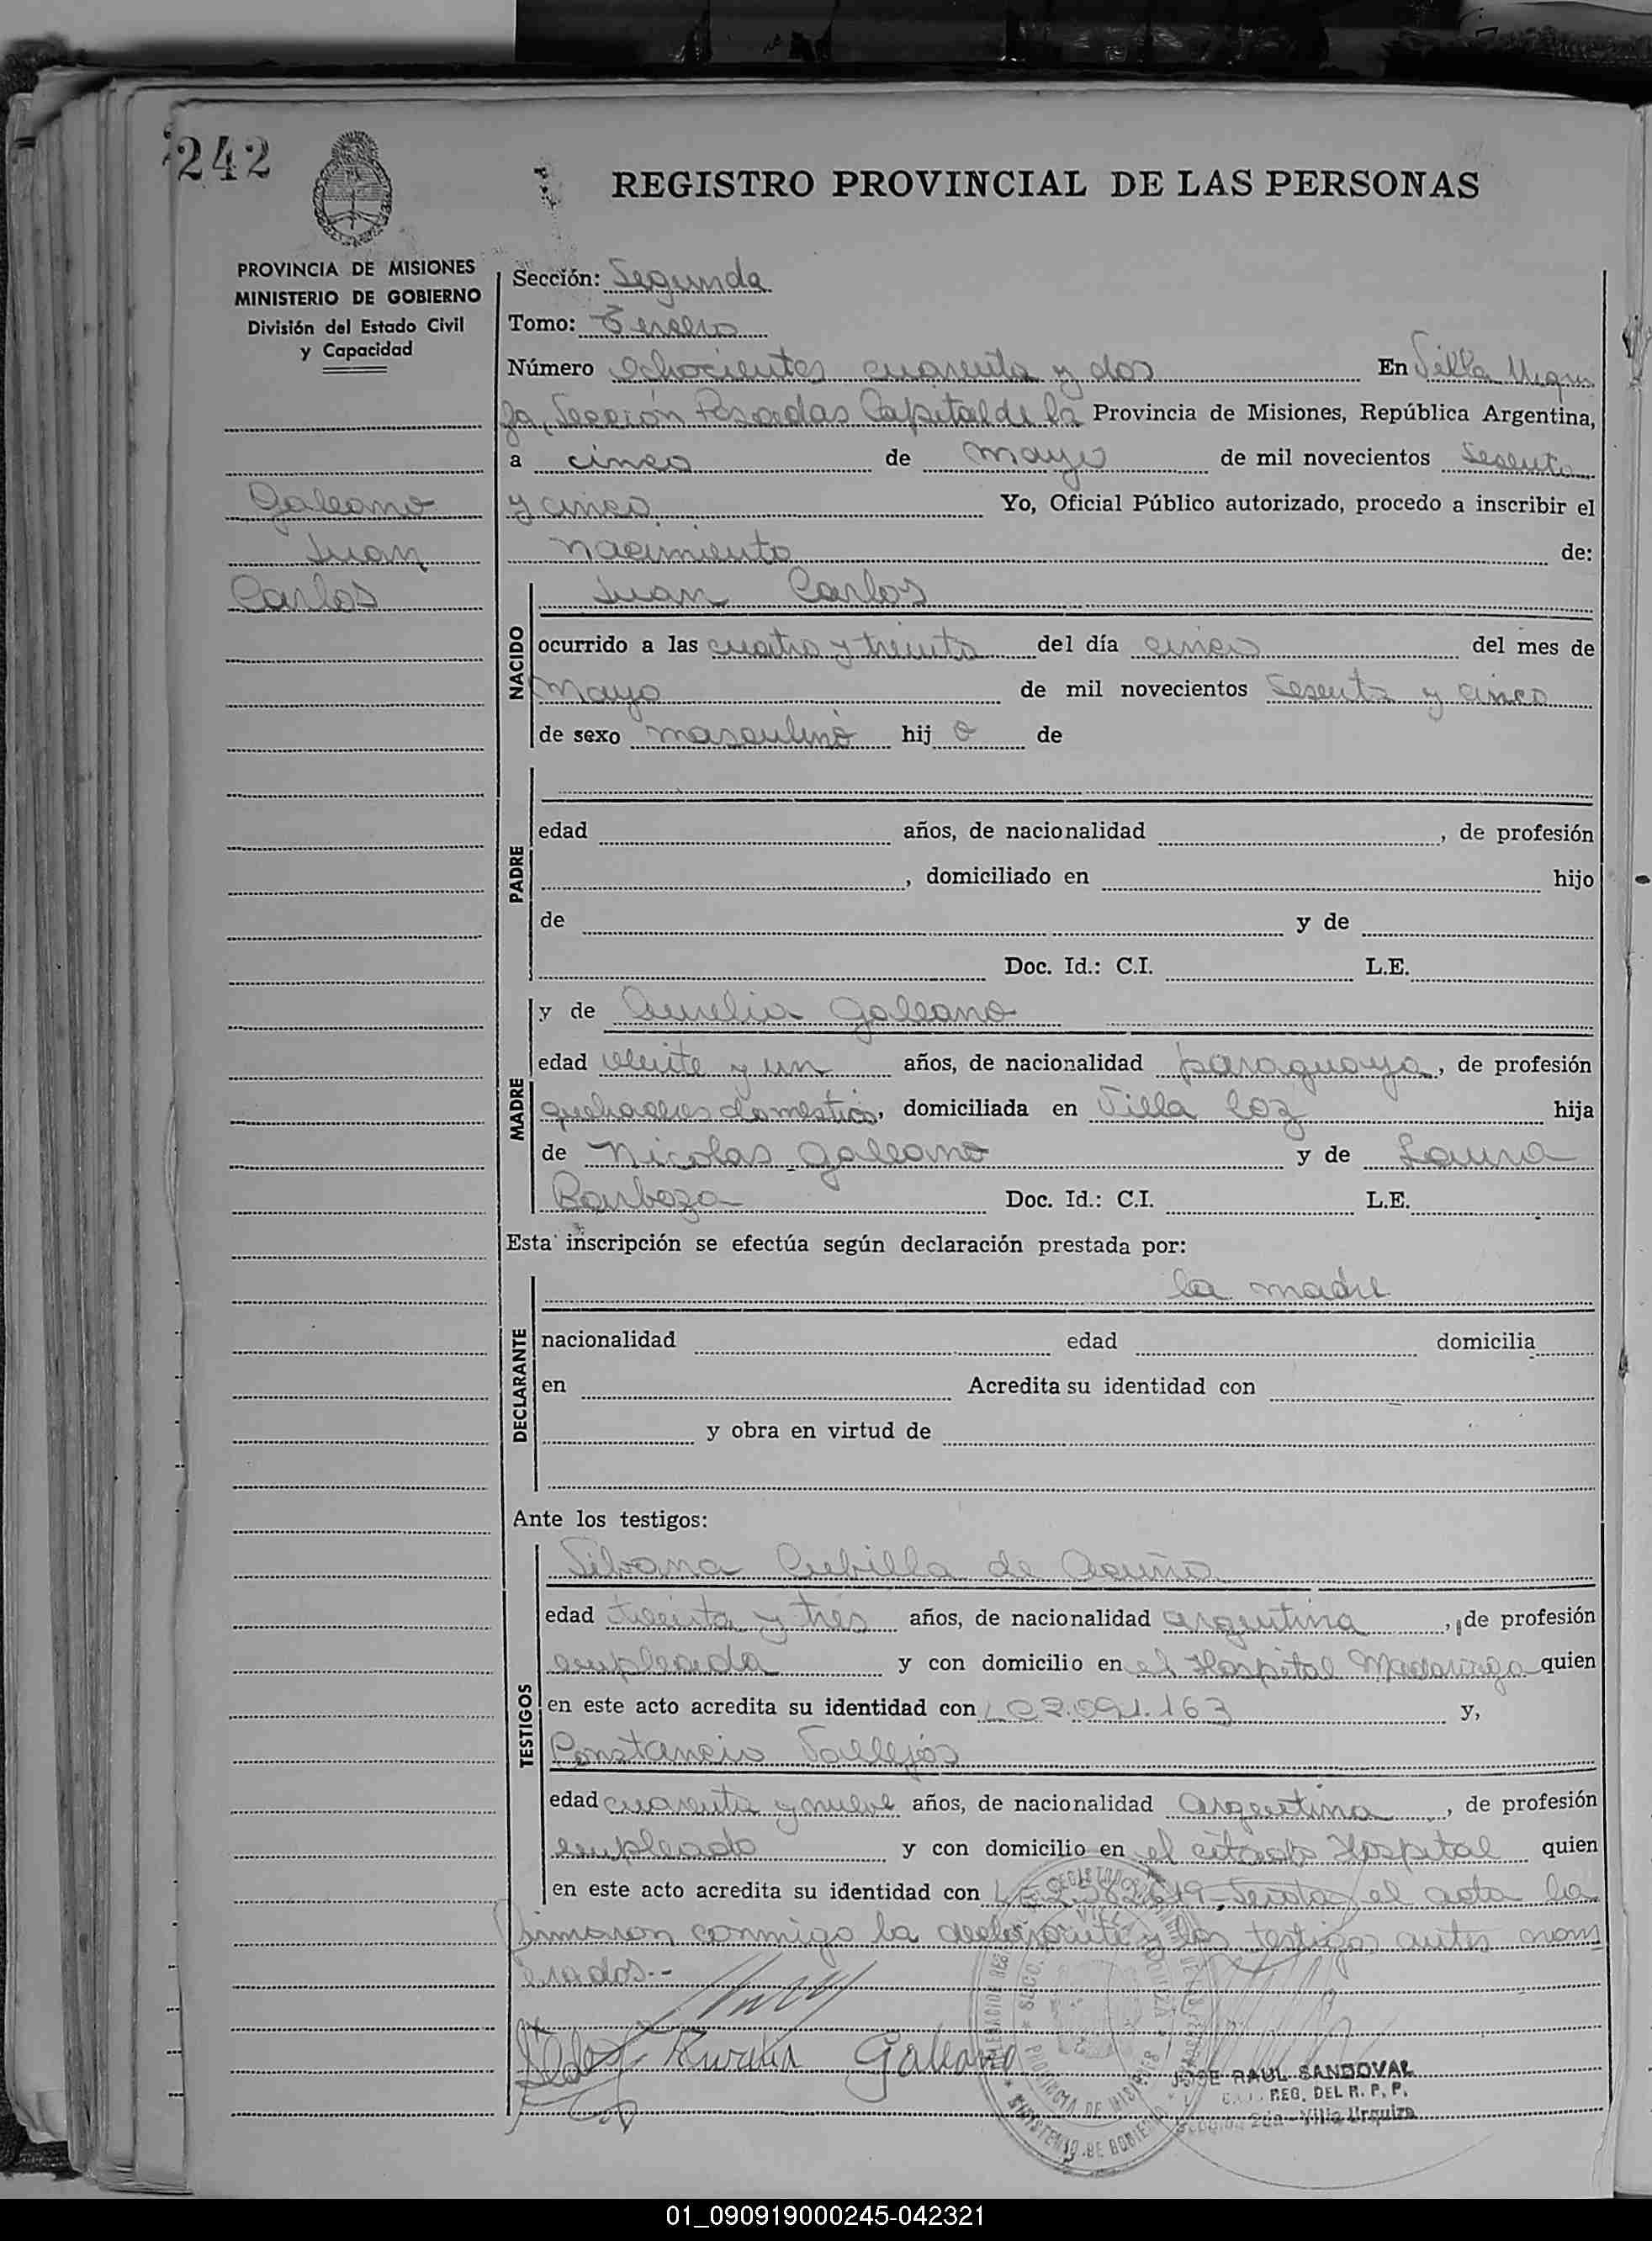 242
REGISTRO PROVINCIAL DE LAS PERSONAS
PROVINCIA DE MISIONES
MINISTERIO DE GOBIERNO
División del Estado Civil
y Capacidad
Galeano
Juan
Carlos
Sección: Segunda
Tomo: Tercero
Número ochocientos cuarenta y dos En Villa Urqui
za, Sección Posadas Capital de la Provincia de Misiones, República Argentina,
a cinco de mayo de mil novecientos sesenta
y cinco Yo, Oficial Público autorizado, procedo a inscribir el
nacimiento de:
NACIDO
Juan Carlos
ocurrido a las cuatro y treinta del día cinco del mes de
mayo de mil novecientos sesenta y cinco
de sexo masculino hij o de
PADRE
edad años, de nacionalidad , de profesión
, domiciliado en hijo
de y de
Doc. Id.: C.I. L.E.
MADRE
y de Aurelia Galeano
edad veinte y un años, de nacionalidad paraguaya, de profesión
quehaceres domesticos, domiciliada en Villa Coz hija
de Nicolas Galeano y de Laura
Barboza Doc. Id.: C.I. L.E.
Esta inscripción se efectúa según declaración prestada por:
DECLARANTE
la madre
nacionalidad edad domicilia
en Acredita su identidad con
y obra en virtud de
Ante los testigos:
TESTIGOS
Silvana Cubilla de Acuña
edad treinta y tres años, de nacionalidad argentina, de profesión
empleada y con domicilio en el Hospital Madariaga quien
en este acto acredita su identidad con L C 2.091.163 y,
Constancio Vallejos
edad cuarenta y nueve años, de nacionalidad argentina, de profesión
empleado y con domicilio en el citado Hospital quien
en este acto acredita su identidad con Leida el acta la
firmaron conmigo la declarante y los testigos antes nom
brados.-
Aurelia Galeano
JOSE RAUL SANDOVAL
REG. DEL R. P. P.
Sección 2da - Villa Urquiza
PROVINCIA DE MISIONES
MINISTERIO DE GOBIERNO
01_090919000245-042321